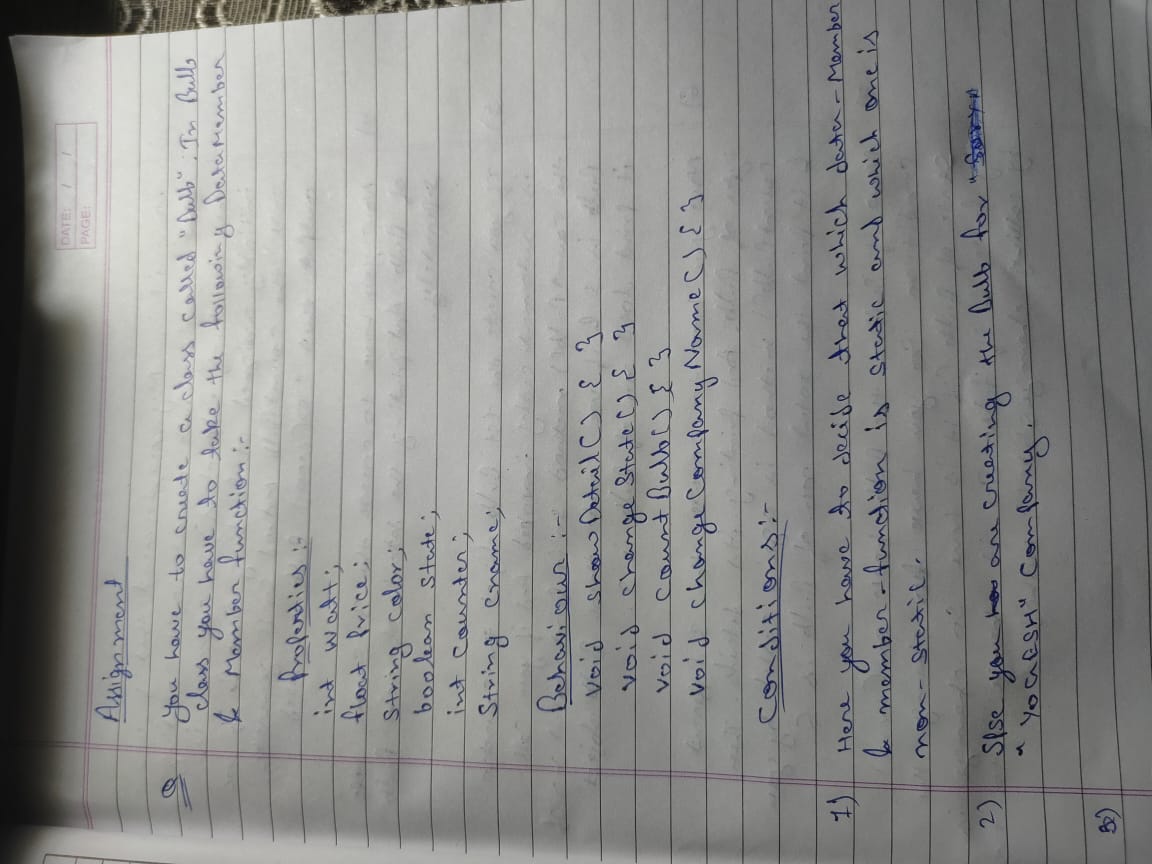 DATE: / /
PAGE:
Assignment
Q You have to create a class called "Bulb". In Bulb
class you have to take the following DataMember
& Member function:-
Properties:-
int watt;
float price;
String color;
boolean state;
int counter;
String cname;
Behaviour:-
void showDetail() { }
void changeState() { }
void countBulb() { }
void changeCompanyName() { }
Conditions:-
1) Here you have to decide that which data-Member
& member-function is static and which one is
non-static.
2) S/se you are creating the Bulb for "
"YOGESH" Company.
3)